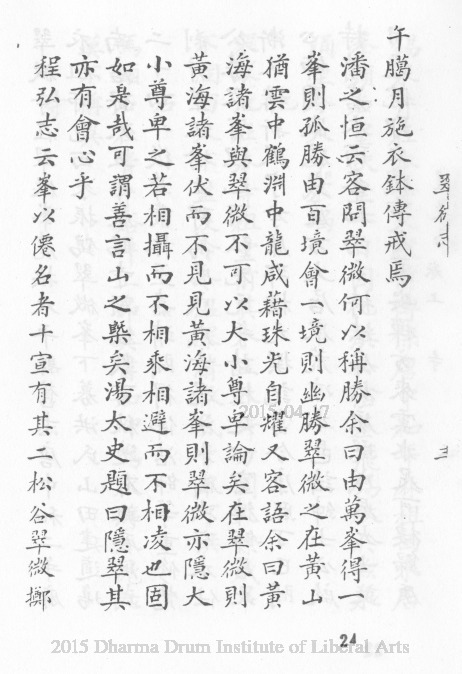 午臈月施衣鉢傳戒焉
潘之恒云客問翠微何以稱勝余曰由萬峯得一
峯則孤勝由百境會一境則幽勝翠微之在黃山
猶雲中鶴淵中龍咸藉珠光自耀又客語余曰黃
海諸峯與翠微不可以大小尊卑論矣在翠微則
黃海諸峯伏而不見見黃海諸峯則翠微亦隱大
小尊卑之若相攝而不相乘相避而不相凌也固
如是哉可謂善言山之槩矣湯太史題曰隱翠其
亦有會心乎
程弘志云峯以僊名者十宣有其二松谷翠微擲
翠微志
三
2015.04.17
24
2015 Dharma Drum Institute of Liberal Arts